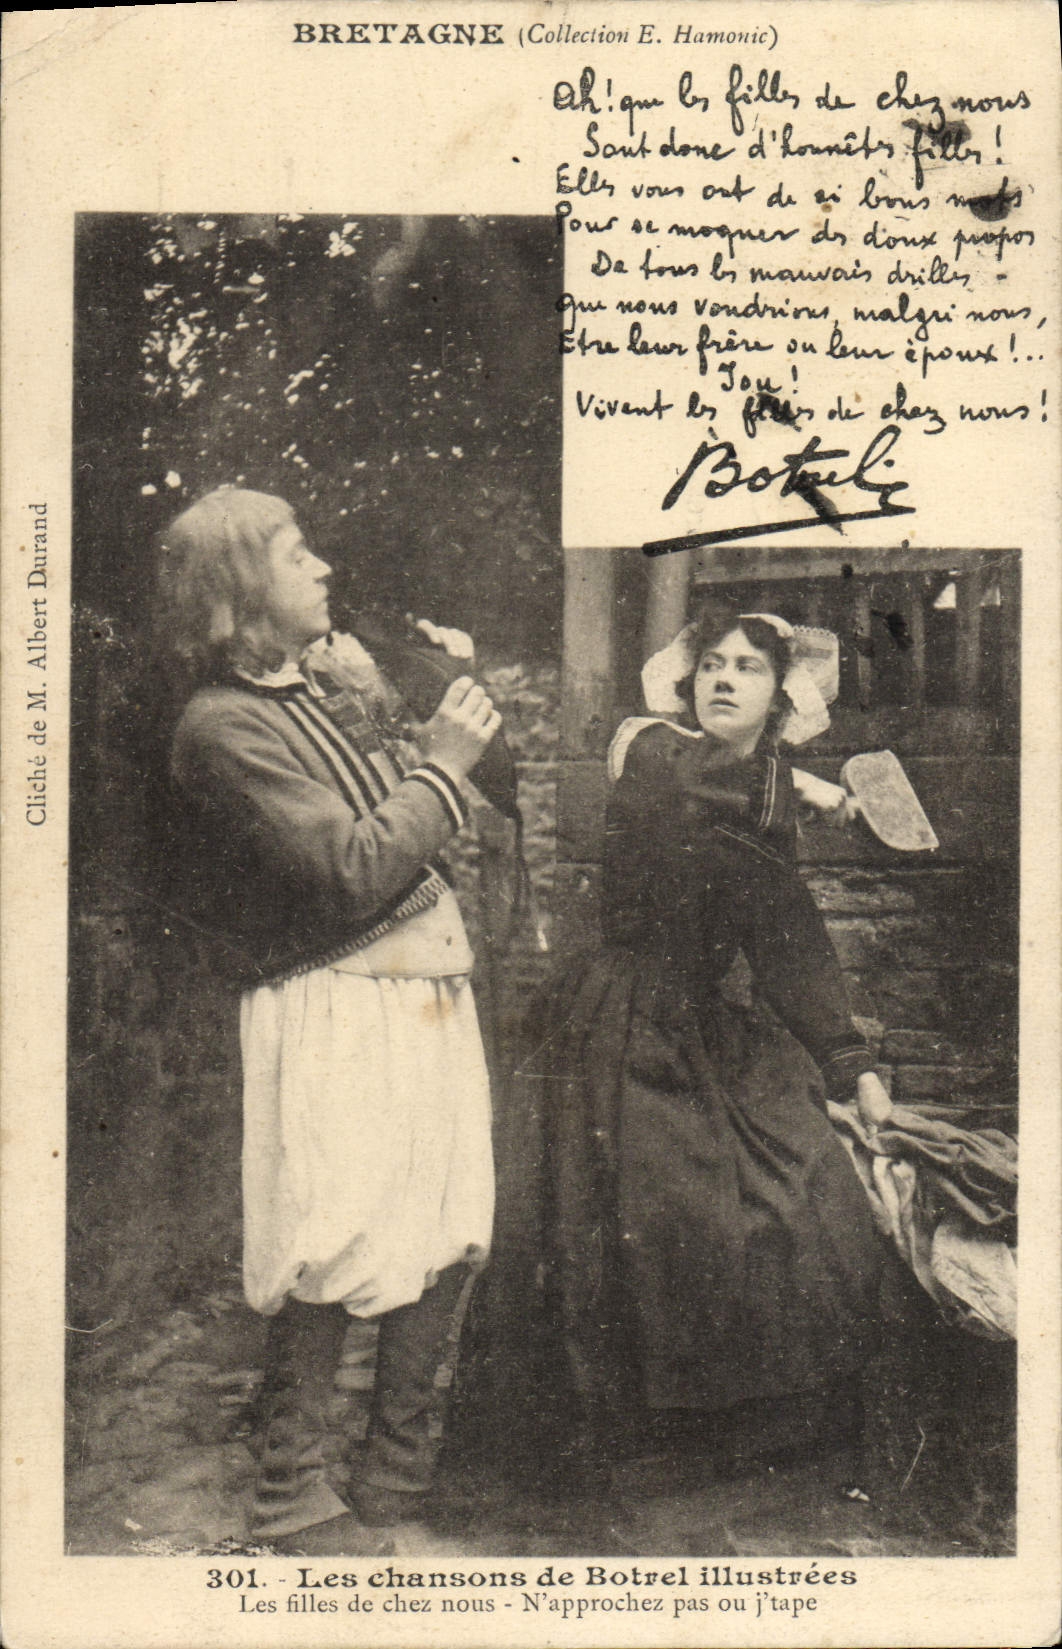 BRETAGNE (Collection E. Hamonic)
Ah! que les filles de chez nous
Sont donc d'honnêtes filles!
Elles vous ont de si bons mots
Pour se moquer des doux propos
De tous les mauvais drilles -
Que nous voudrions, malgré nous,
Etre leur frère ou leur époux!...
Iou!
Vivent les filles de chez nous!
Botrel
Cliché de M. Albert Durand
301. - Les chansons de Botrel illustrées
Les filles de chez nous - N'approchez pas ou j'tape